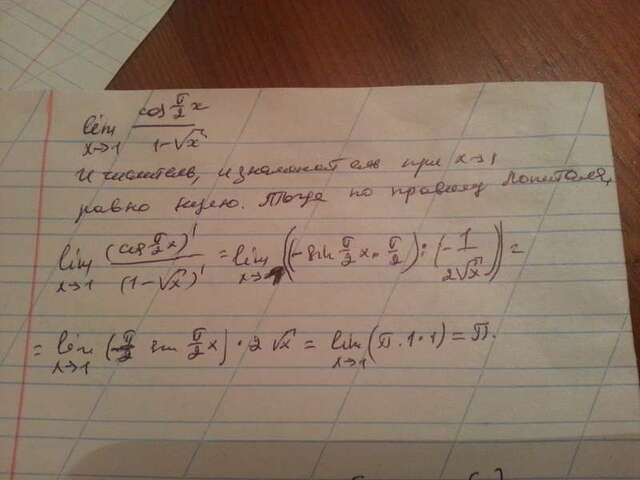 lim x→1 cos π/2 x / 1-√x
И числитель, и знаменатель при x→1
равно нулю. Тогда по правилу Лопиталя,
lim x→1 (cos π/2 x)' / (1-√x)' = lim x→1 ((-sin π/2 x · π/2) : (-1/2√x)) =
= lim x→1 (-π/2 sin π/2 x) · 2√x = lim x→1 (π·1·1) = π.